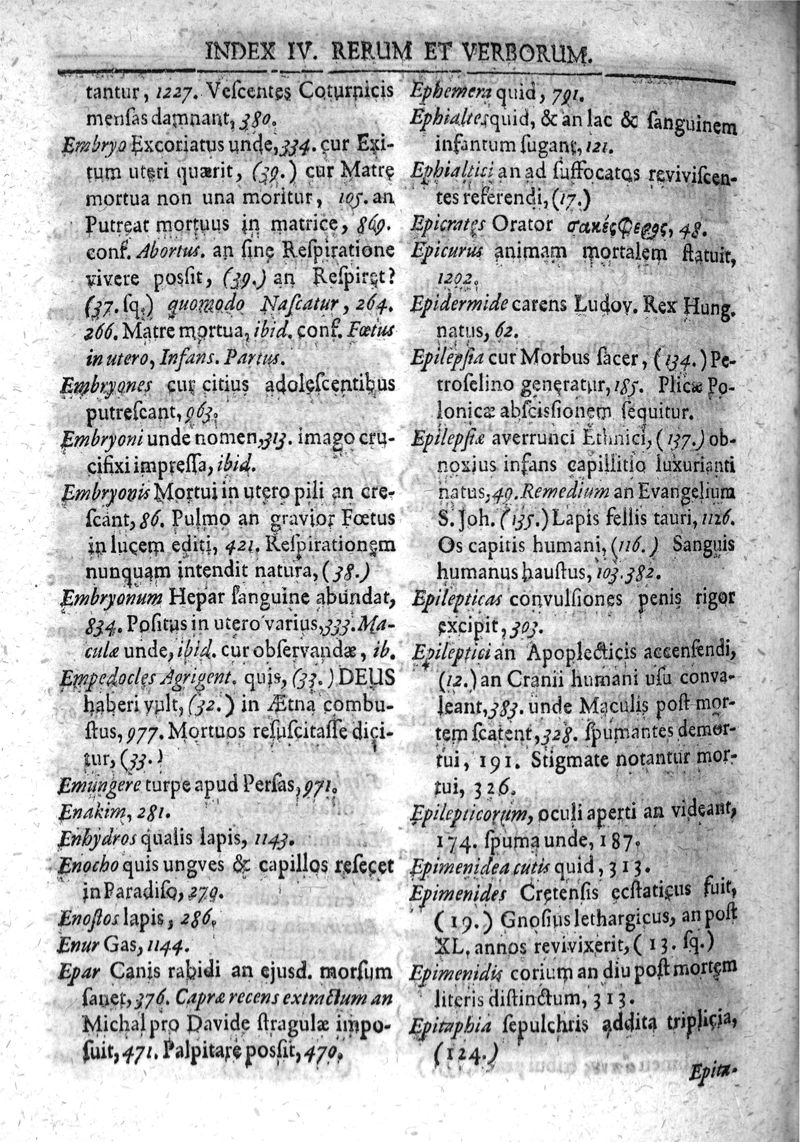 INDEX IV. RERUM ET VERBORUM.
tantur, 1227. Veſcentes Coturnicis
menſas damnant, 380.
Embryo Excoriatus unde, 334. cur Exi-
tum uteri quærit, (39.) cur Matre
mortua non una moritur, 105. an
Putreat mortuus in matrice, 869.
conf. Abortus. an ſine Reſpiratione
vivere poſſit, (39.) an Reſpiret?
(37. ſq.) quomodo Naſcatur, 264.
266. Matre mortua, ibid. conf. Fœtus
in utero, Infans. Partus.
Embryones cur citius adoleſcentibus
putreſcant, 963.
Embryoni unde nomen, 313. imago cru-
cifixi impreſſa, ibid.
Embryonis Mortui in utero pili an cre-
ſcant, 86. Pulmo an gravior Fœtus
in lucem editi, 421. Reſpirationem
nunquam intendit natura, (38.)
Embryonum Hepar ſanguine abundat,
834. Poſitus in utero varius, 333. Ma-
culæ unde, ibid. cur obſervandæ, ib.
Empedocles Agrigent. quis, (33.) DEUS
haberi vult, (32.) in Ætna combu-
ſtus, 977. Mortuos reſuſcitaſſe dici-
tur, (33.)
Emungere turpe apud Perſas, 971.
Enakim, 281.
Enhydros qualis lapis, 1143.
Enocho quis ungves & capillos reſecet
in Paradiſo, 279.
Enoſtos lapis, 286.
Enur Gas, 1144.
Epar Canis rabidi an ejusd. morſum
ſanet, 376. Capræ recens extractum an
Michal pro Davide ſtragulæ impo-
ſuit, 471. Palpitare poſſit, 470.
Ephemera quid, 791.
Ephialtes quid, & an lac & ſanguinem
infantum ſugant, 121.
Ephialtici an ad ſuffocatos reviviſcen-
tes referendi, (17.)
Epicrates Orator σακέςφερος, 48.
Epicurus animam mortalem ſtatuit,
1202.
Epidermide carens Ludov. Rex Hung.
natus, 62.
Epilepſia cur Morbus ſacer, (134.) Pe-
troſelino generatur, 185. Plicæ Po-
lonicæ abſciſſionem ſequitur.
Epilepſiæ averrunci Ethnici, (137.) ob-
noxius infans capillitio luxurianti
natus, 49. Remedium an Evangelium
S. Joh. (135.) Lapis fellis tauri, 1126.
Os capitis humani, (116.) Sanguis
humanus hauſtus, 103. 382.
Epilepticas convulſiones penis rigor
excipit, 303.
Epileptici an Apoplecticis accenſendi,
(12.) an Cranii humani uſu conva-
leant, 383. unde Maculis poſt mor-
tem ſcatent, 328. ſpumantes demor-
tui, 191. Stigmate notantur mor-
tui, 326.
Epilepticorum, oculi aperti an videant,
174. ſpuma unde, 187.
Epimenidea cutis quid, 313.
Epimenides Cretenſis ecſtaticus fuit,
(19.) Gnoſius lethargicus, an poſt
XL. annos revivixerit, (13. ſq.)
Epimenidis corium an diu poſt mortem
literis diſtinctum, 313.
Epitaphia ſepulchris addita triplicia,
(124.)
Epita-